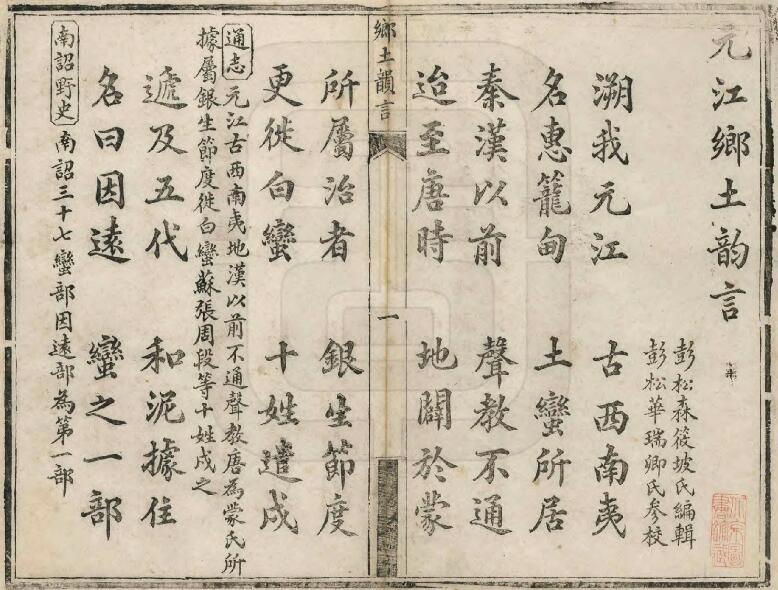 元江鄉土韵言
彭松森筱坡氏編輯
彭松華瑞卿氏參校
溯我元江 古西南夷
名惠籠甸 土蠻所居
秦漢以前 聲教不通
迨至唐時 地闢於蒙
鄉土韻言
一
所屬治者 銀生節度
更徙白蠻 十姓遣戍
通志 元江古西南夷地漢以前不通聲教唐為蒙氏所
據屬銀生節度徙白蠻蘇張周段等十姓戍之
遞及五代 和泥據住
名曰因遠 蠻之一部
南詔野史 南詔三十七蠻部因遠部為第一部